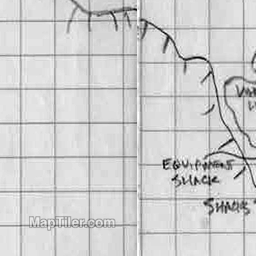 EQUIPMENT
SHACK
SHACKS
MapTiler.com